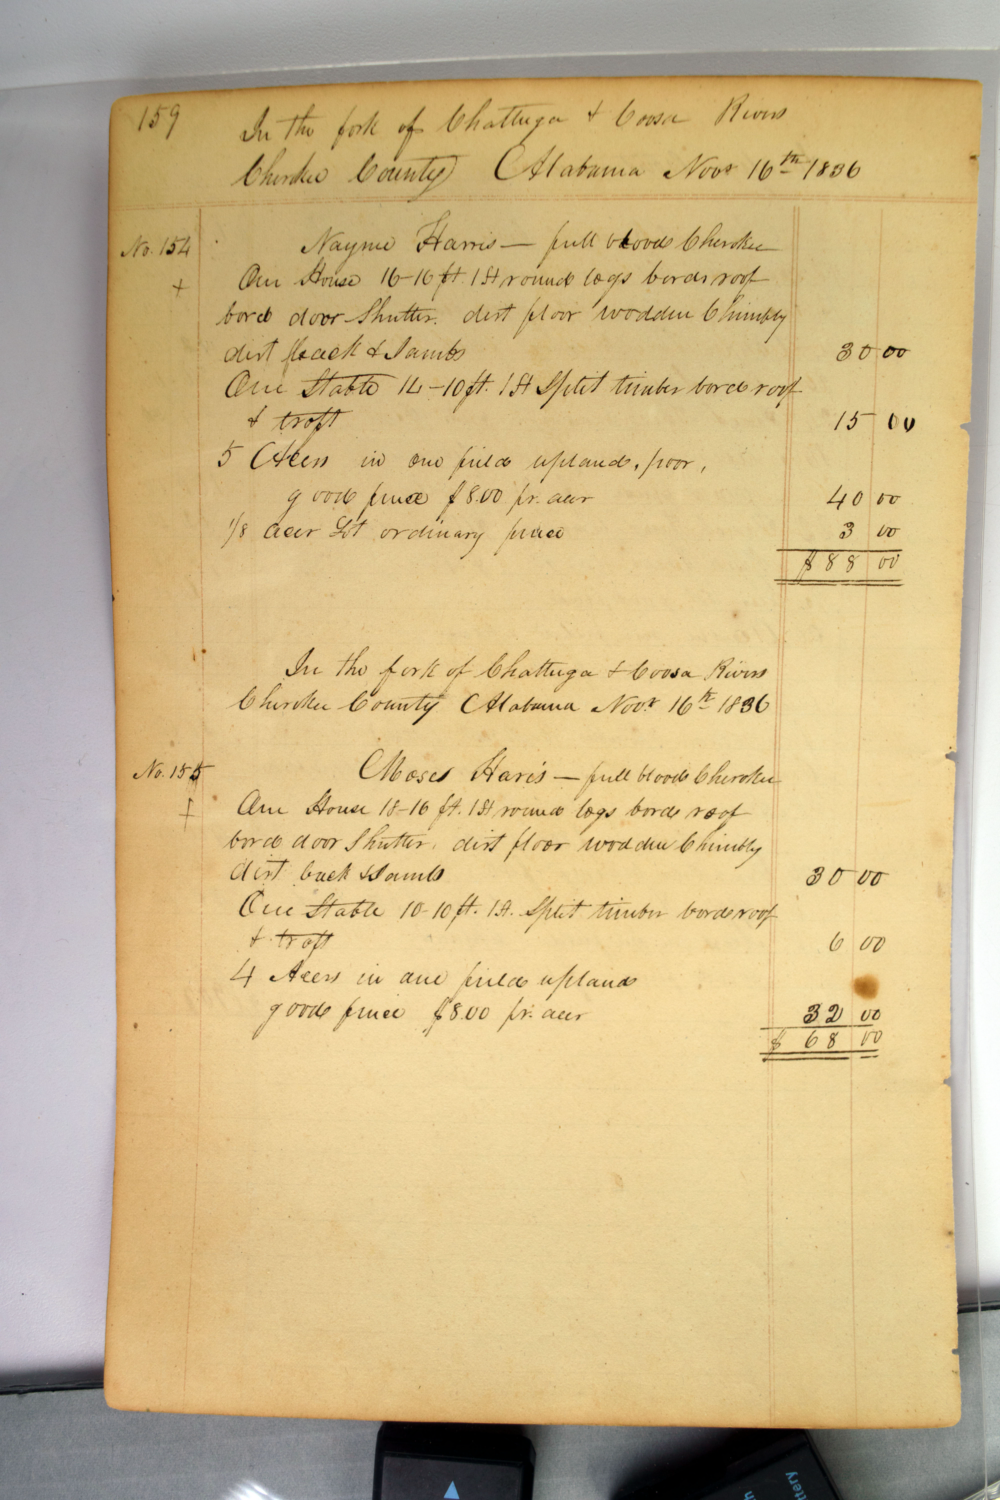 159
In the fork of Chattuga & Coosa Rivers
Cherokee County Alabama Novr 16th 1836
No. 154
Nayne Harris — full blood Cherokee
+
One House 16-16 ft. 1 St round logs bords roof
bord door Shutter. dirt floor wodden Chimbly
dirt back & Jambs 30 00
One Stable 14-10 ft. 1 St Split timber bords roof
& troft 15 00
5 Acers in one field upland, poor,
good fence $8.00 pr. acer 40 00
1/8 acer Lot ordinary fence 3 00
$88 00
In the fork of Chattuga & Coosa Rivers
Cherokee County Alabama Novr 16th 1836
No. 155
Moses Haris — full blood Cherokee
+
One House 18-16 ft. 1 St round logs bords roof
bord door Shutter, dirt floor wodden Chimbly
dirt back & Jambs 30 00
One Stable 10-10 ft. 1 St. Split timber bords roof
& troft 6 00
4 Acers in one field upland
good fence $8.00 pr. acer 32 00
$ 68 00
ttery